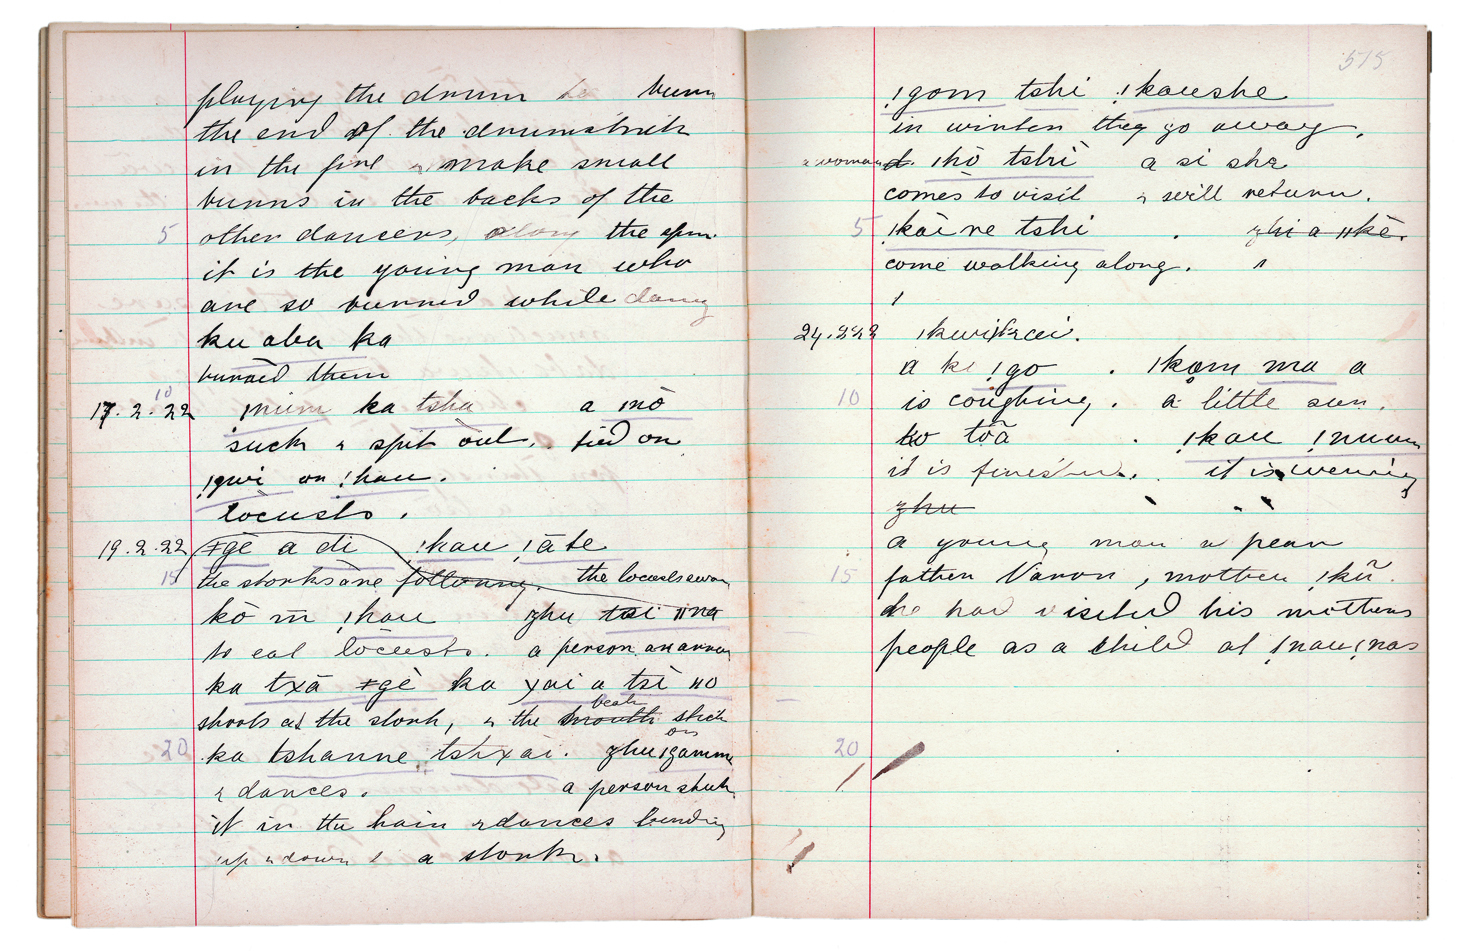 playing the drum burn
the end of the drumstick
in the fire & make small
burns in the backs of the
5 other dancers, along the
it is the young men who
are so burned while
ku abu ka
burned them
10
17.2.22 ǀnum ka tsha a ǀnò
suck & spit out. tied on
ǃgwi on ǃkau.
locusts.
19.2.22 ǂgè a di ǃkau ǀā te
15 the storks are following. the locusts
kò m ǃkau zhu tsi ǁna
to eat locusts. a person an arrow
ka txā ǂgè ka xai a tsi ǁo
beak
shoots at the stork, & the mouth stick
on
20 ka tshanne tshxai. zhu ǀgamme
& dances. a person stuck
it in the hair & dances bending
up & down a stork.
515
ǃgom tshi ǃkaushe
in winter they go away.
a woman d. ǀhò tshi a si she
comes to visit & will return.
5 ǃkài re tshi . zhi a ǁkè.
come walking along.
24.2.22
a ke ǃgo . ǀkom ma a
10 is coughing. a little sun.
to tōā . ǃkau
it is finished. it is evening
zhu
a young man
15 father Varon, mother ǀkū.
he had visited his mothers
people as a child at
20